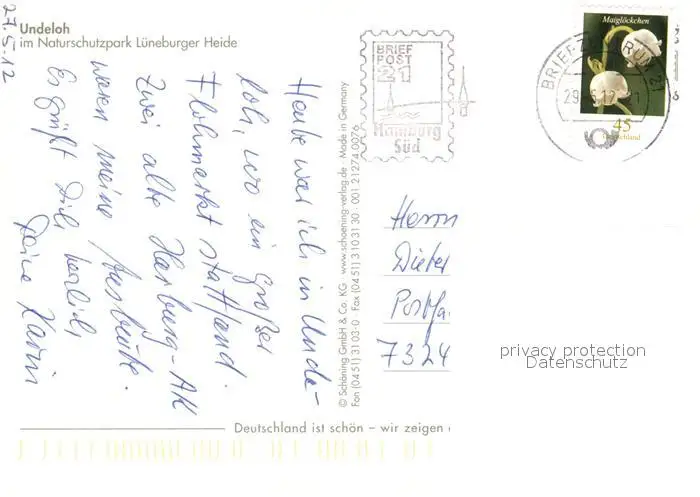 27.5.12
Undeloh
im Naturschutzpark Lüneburger Heide
Heute war ich in Unde-
loh, wo ein großer
Flohmarkt stattfand.
Zwei alte Harburg-AK
waren meine Ausbeute.
Es grüßt Dich herzlich
Deine Karin
© Schöning GmbH & Co. KG · www.schoening-verlag.de · Made in Germany
Fon (0451) 3103-0 · Fax (0451) 3103130 · 001 21274 0076
BRIEF
POST
21
Hamburg
Süd
BRIEFZENTRUM 21
Maiglöckchen
45
Deutschland
Herrn
Dieter
Postfa
7324
privacy protection
Datenschutz
Deutschland ist schön – wir zeigen